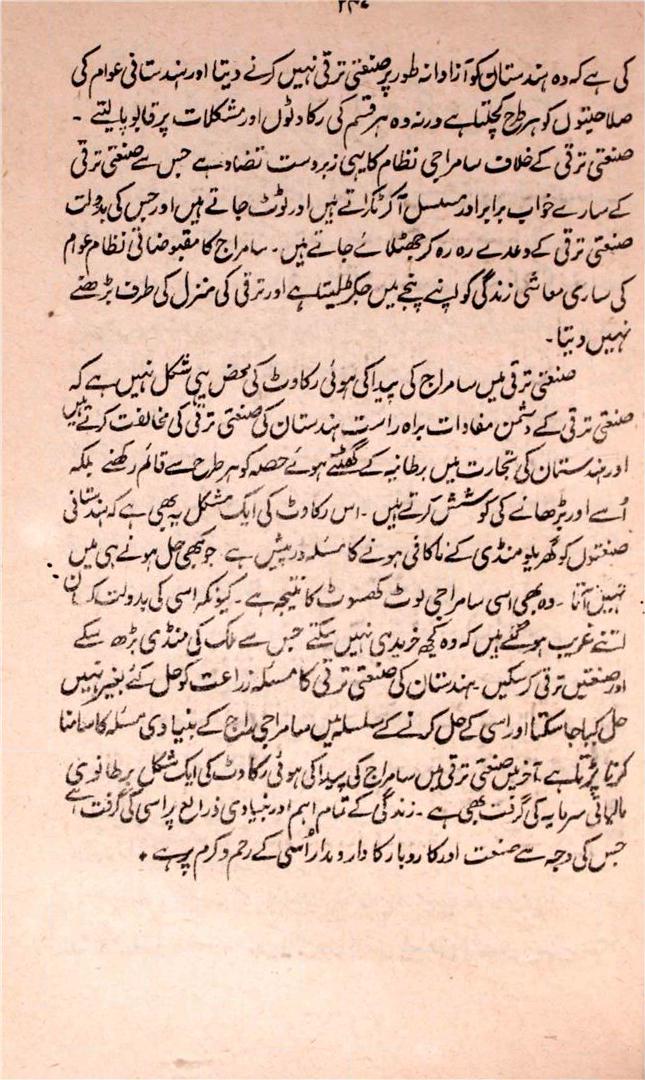 کی ہے کہ وہ ہندستان کو آزادانہ طور پر صنعتی ترقی نہیں کرنے دیتا اور ہندستانی عوام کی
صلاحیتوں کو ہر طرح کچلتا ہے ورنہ وہ ہر قسم کی رکاوٹوں اور مشکلات پر قابو پالیتے ۔
صنعتی ترقی کے خلاف سامراجی نظام کا یہی زبردست تضاد ہے جس سے صنعتی ترقی
کے سارے خواب برابر اور مسلسل آکر ٹکراتے ہیں اور ٹوٹ جاتے ہیں اور جس کی بدولت
صنعتی ترقی کے وعدے رہ رہ کر جھٹلائے جاتے ہیں ۔ سامراج کا مقبوضاتی نظام عوام
کی ساری معاشی زندگی کو اپنے پنجے میں جکڑ لیتا ہے اور ترقی کی منزل کی طرف بڑھنے
نہیں دیتا ۔
صنعتی ترقی میں سامراج کی پیدا کی ہوئی رکاوٹ کی محض یہی شکل نہیں ہے کہ
صنعتی ترقی کے دشمن مفادات براہ راست ہندستان کی صنعتی ترقی کی مخالفت کرتے ہیں
اور ہندستان کی تجارت میں برطانیہ کے گھٹتے ہوئے حصہ کو ہر طرح سے قائم رکھنے بلکہ
اُسے اور بڑھانے کی کوشش کرتے ہیں ۔ اس رکاوٹ کی ایک مشکل یہ بھی ہے کہ ہندستانی
صنعتوں کو گھریلو منڈی کے ناکافی ہونے کا مسئلہ درپیش ہے جو کبھی حل ہونے ہی میں
نہیں آتا ۔ وہ بھی اسی سامراجی لوٹ کھسوٹ کا نتیجہ ہے ۔ کیونکہ اسی کی بدولت کسان
اتنے غریب ہو گئے ہیں کہ وہ کچھ خرید ہی نہیں سکتے جس سے ملک کی منڈی بڑھ سکے
اور صنعتیں ترقی کر سکیں ۔ ہندستان کی صنعتی ترقی کا مسئلہ زراعت کو حل کئے بغیر نہیں
حل کیا جاسکتا اور اسی کے حل کرنے کے سلسلہ میں سامراجی راج کے بنیادی مسئلہ کا سامنا
کرنا پڑتا ہے ۔ آخر میں صنعتی ترقی میں سامراج کی پیدا کی ہوئی رکاوٹ کی ایک شکل برطانوی
مالیاتی سرمایہ کی گرفت بھی ہے ۔ زندگی کے تمام اہم اور بنیادی ذرائع پر اسی کی گرفت ہے
جس کی وجہ سے صنعت اور کاروبار کا دارومدار اُسی کے رحم و کرم پر ہے ۔